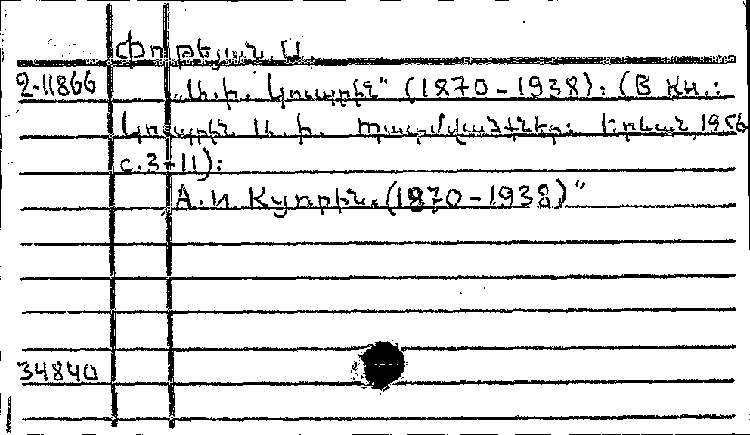 Փոթեյան Ս.
2-11866 „Ա.Ի. Կուպրին" (1870-1938): (В кн.:
Կուպրին Ա.Ի. Պատմվածքներ: Երևան, 1956
с.3-11):
А.И. Куприн. (1870-1938)"
34840